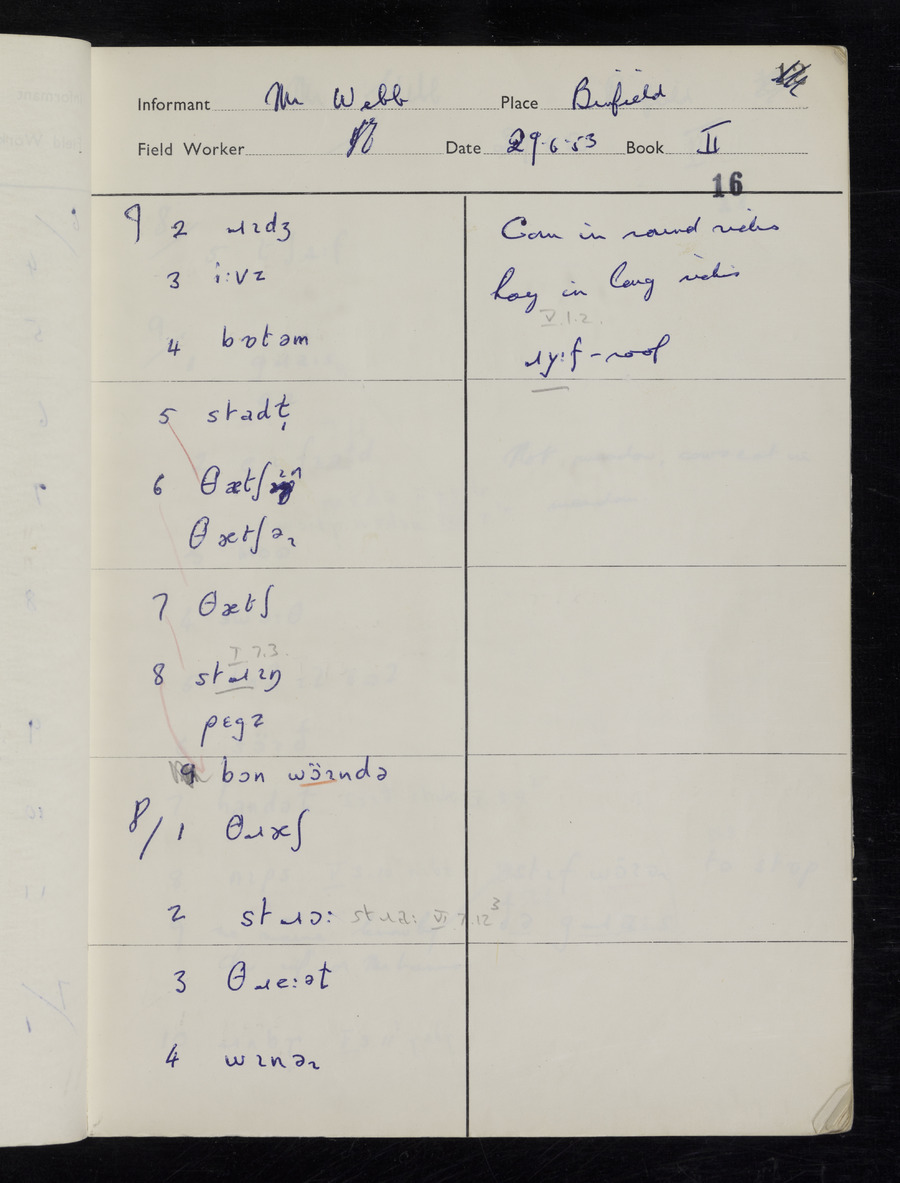 Informant Mr Webb Place Binfield
Field Worker Date 29.6.53 Book II
16
7 2 ɹɪdʒ Corn in round ricks
3 i:vz hay in long ricks
V.1.2.
4 bɒtəm ɹy:f - roof
5 stadḷ
6 θætʃɪn
θætʃəɹ
7 θætʃ
I 7.3.
8 stɹɪŋ
pɛgz
9 bɔn wɔ̈ɪndə
8/ 1 θɹæʃ
2 stɹɔ: stɹɑ: VI 7.12³
3 θɹe:ət
4 wɪnəɹ